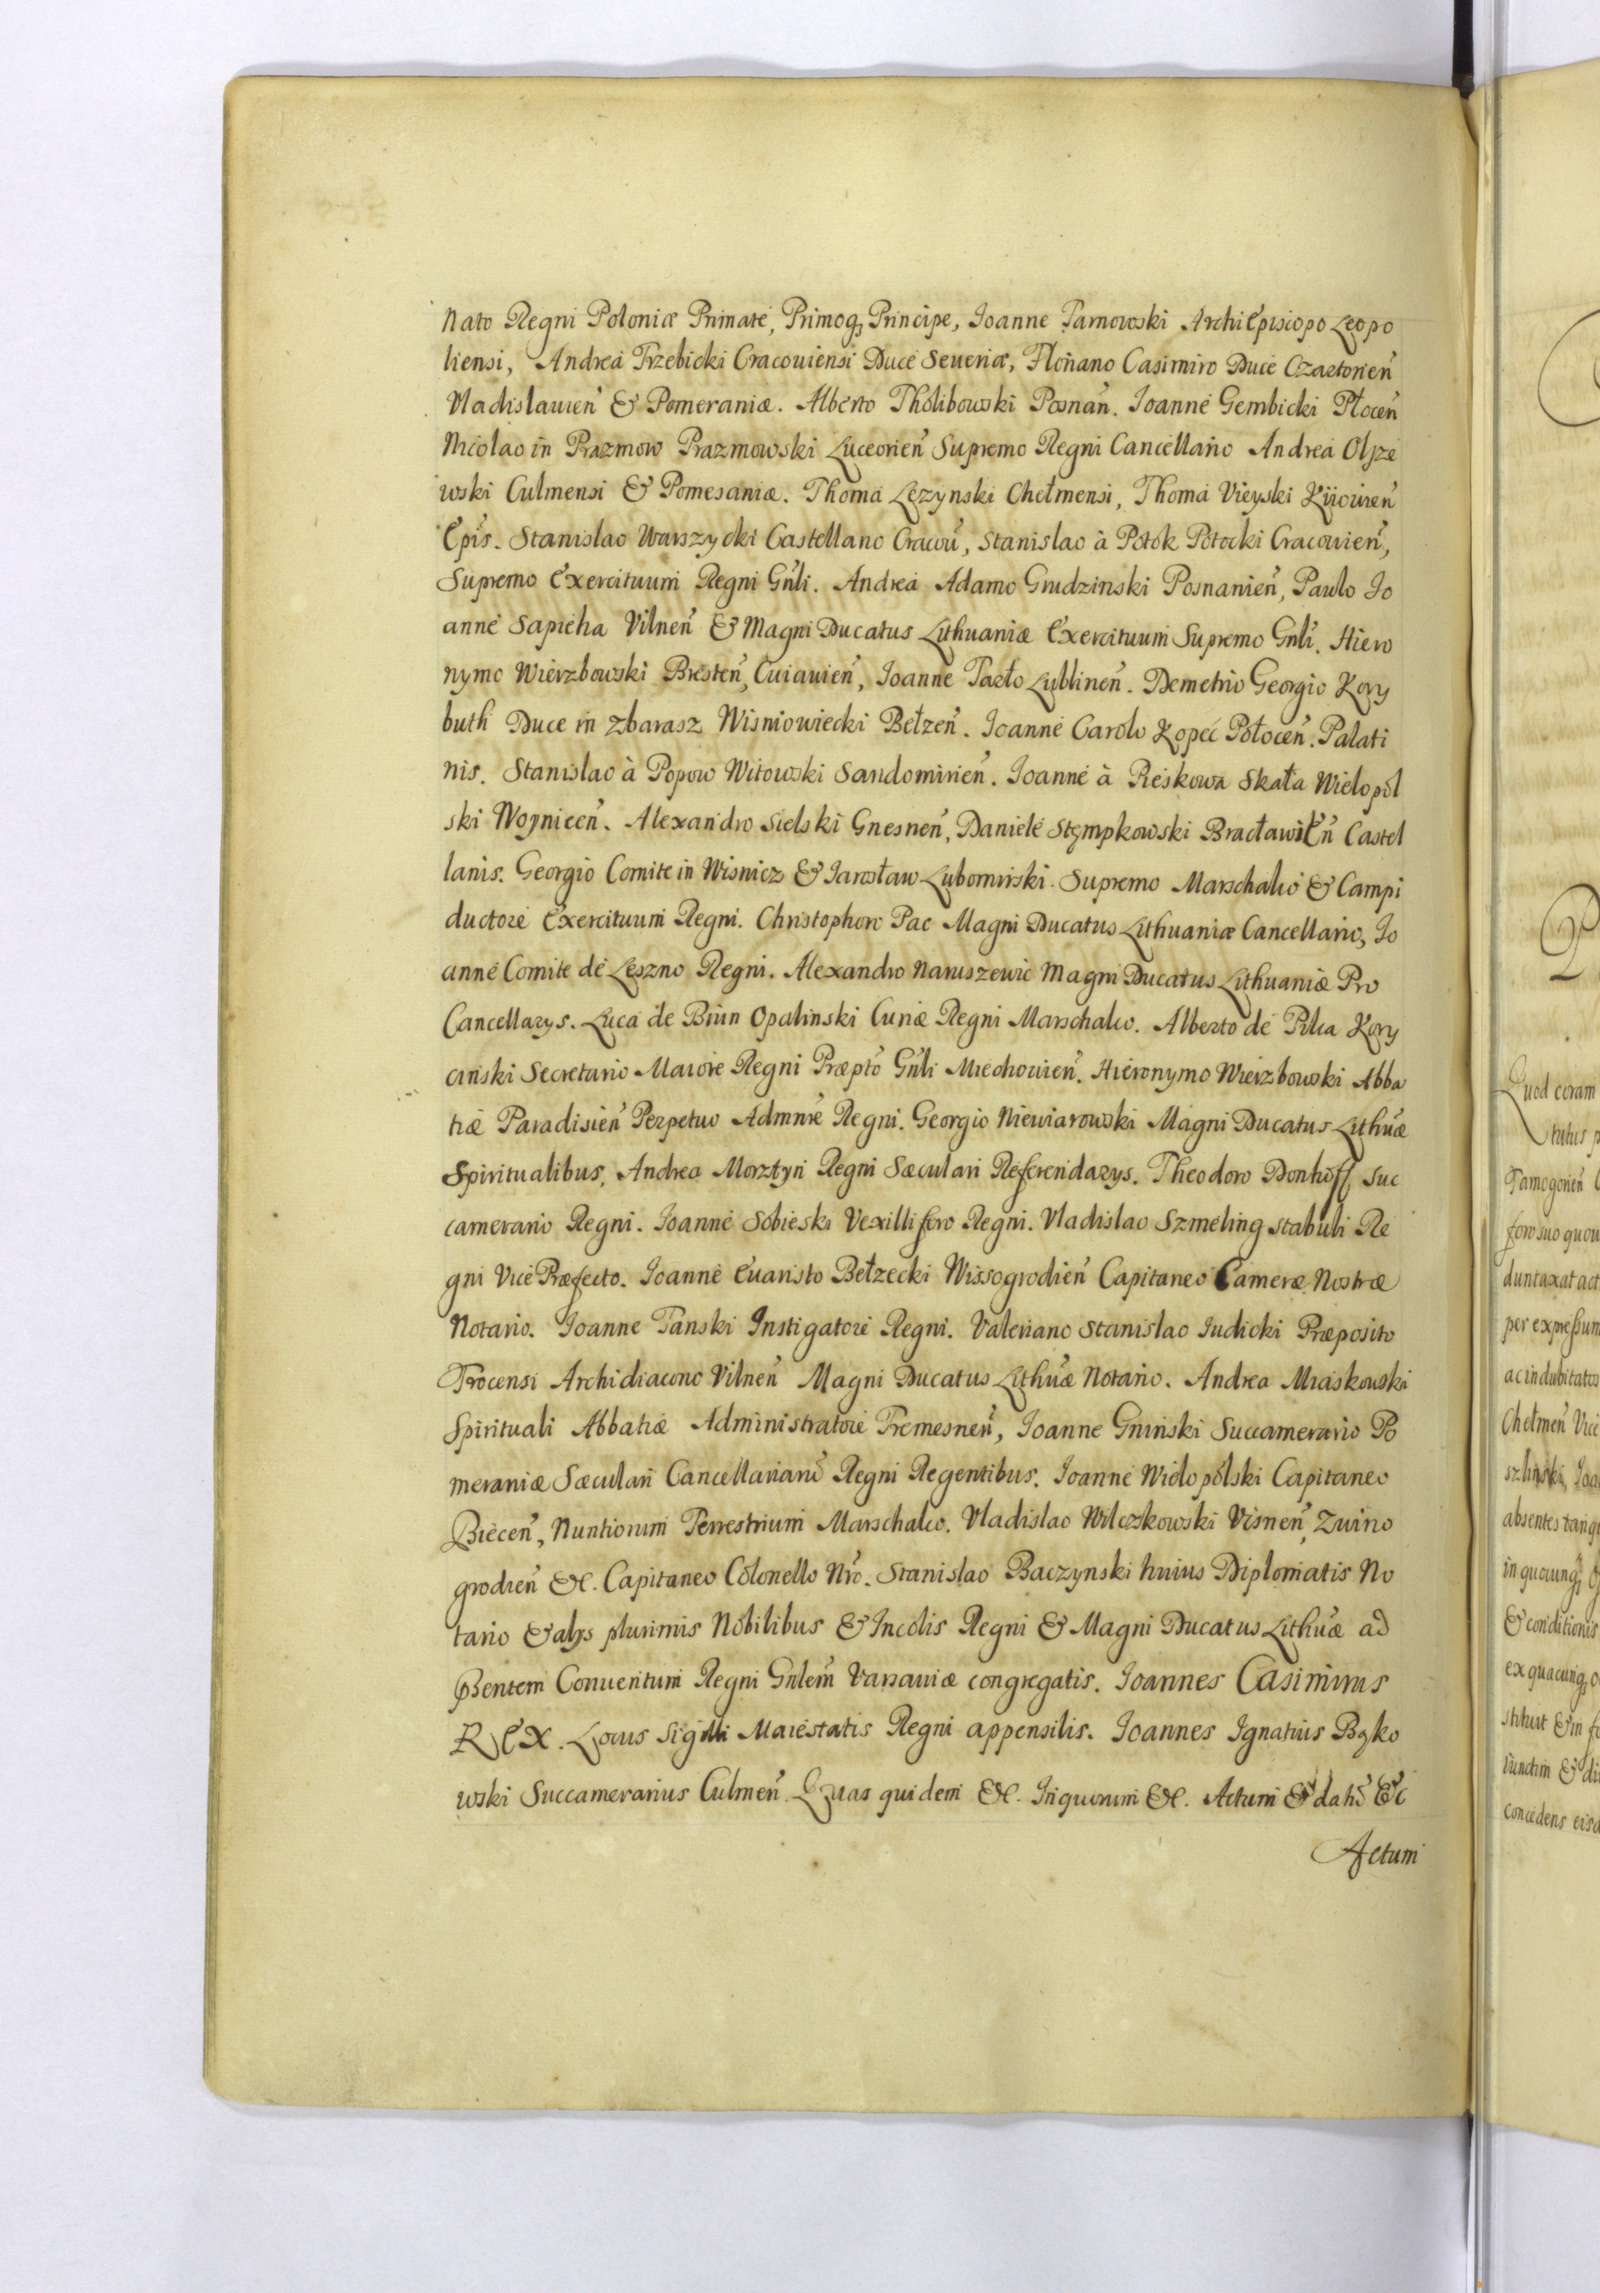 Nato Regni Poloniæ Primate, Primoq, Principe, Ioanne Tarnowski ArchiEpiscopo Leopo
liensi, Andrea Trzebicki Cracouiensi Duce Seueriæ, Floriano Casimiro Duce Czartorień
Vladislauień & Pomeraniæ. Alberto Tholibowski Posnań. Ioanne Gembicki Płoceń
Nicolao in Prazmow Prazmowski Luceorień Supremo Regni Cancellario Andrea Olsze
wski Culmensi & Pomesaniæ. Thoma Lezynski Chełmensi, Thoma Vieyski Kiiouień
Epis. Stanislao Warszycki Castellano Cracou, Stanislao à Potok Potocki Cracouień,
Supremo Exercituum Regni Gnli. Andrea Adamo Grudzinski Posnanień, Paulo Io
anne Sapieha Vilneń & Magni Ducatus Lithuaniæ Exercituum Supremo Gnli. Hiero
nymo Wierzbowski Bresteń, Cuiauień, Ioanne Tarło Lublineń. Demetrio Georgio Kory
buth Duce in Zbarasz Wisniowiecki Bełzeń. Ioanne Carolo Kopeć Połoceń. Palati
nis. Stanislao à Popow Witowski Sandomirień. Ioanne à Pieskowa Skała Wielopol
ski Woyniceń. Alexandro Sielski Gnesneń, Daniele Stempkowski Bracławień Castel
lanis. Georgio Comite in Wisnicz & Iarosław Lubomirski Supremo Marschalco & Campi
ductore Exercituum Regni. Christophoro Pac Magni Ducatus Lithuaniæ Cancellario, Io
anne Comite de Leszno Regni. Alexandro Naruszewic Magni Ducatus Lithuaniæ Pro
Cancellarys. Luca de Bnin Opalinski Curiæ Regni Marschalco. Alberto de Pilca Kory
cinski Secretario Maiore Regni Præpto Gnli Miechouień. Hieronymo Wierzbowski Abba
tiæ Paradisień Perpetuo Admnre Regni. Georgio Niewiarowski Magni Ducatus Lithuæ
Spiritualibus, Andrea Morsztyn Regni Sæculari Referendarys. Theodoro Donhoff Suc
camerario Regni. Ioanne Sobieski Vexillifero Regni. Vladislao Szmeling Stabuli Re
gni Vice Præfecto. Ioanne Euaristo Bełzecki Wissogrodień Capitaneo Cameræ Nostræ
Notario. Ioanne Tanski Instigatore Regni. Valeriano Stanislao Iudicki Præposito
Trocensi Archidiacono Vilneń Magni Ducatus Lithuæ Notario. Andrea Miaskowski
Spirituali Abbatiæ Administratore Tremesneń, Ioanne Gninski Succamerario Po
meraniæ Sæculari Cancellariarū Regni Regentibus. Ioanne Wielopolski Capitaneo
Bieceń, Nuntiorum Terrestrium Marschalco. Vladislao Wilczkowski Visneń, Zwino
grodień &c. Capitaneo Colonello Nro. Stanislao Baczynski huius Diplomatis No
tario & alys plurimis Nobilibus & Incolis Regni & Magni Ducatus Lithuæ ad
pñtem Conuentum Regni Gnlem Varsauiæ congregatis. Ioannes Casimirus
REX. Locus Sigilli Maiestatis Regni appensilis. Ioannes Ignatius Bąko
wski Succamerarius Culmeń. Quas quidem &c. In quorum &c. Actum & datū &c
Actum
Quod coram
Tamogorień
foro suo quou
duntaxat act
per expressum
ac indubitatos
Chełmeń Vice
absentes tanq
in quorunq
& conditionis
ex quacunq
stituit & in
iunctim & di
concedens eisd